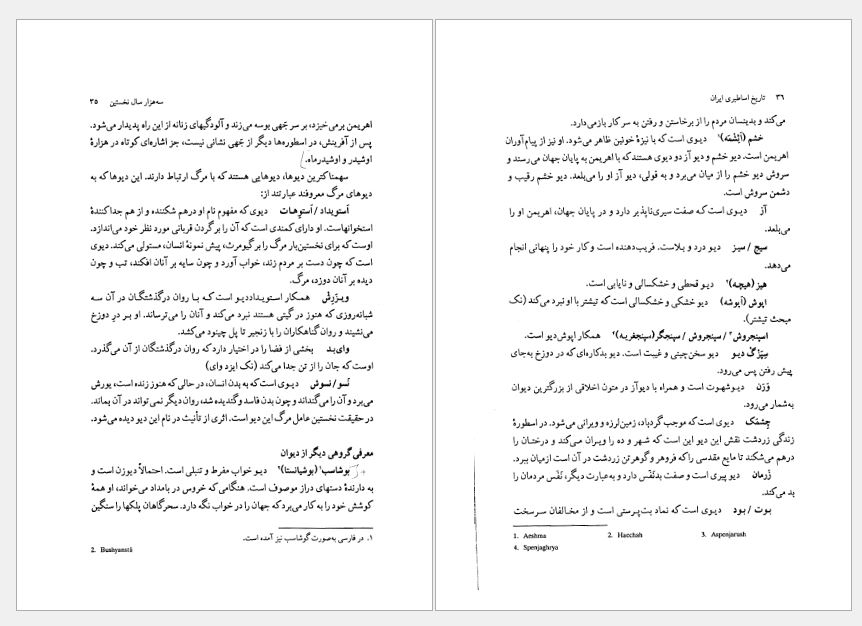 سه‌هزار سال نخستین ۳۵
اهریمن برمی‌خیزد، بر سر جَهی بوسه می‌زند و آلودگیهای زنانه از این راه پدیدار می‌شود.
پس از آفرینش، در اسطوره‌ها دیگر از جَهی نشانی نیست، جز اشاره‌ای کوتاه در هزارهٔ
اوشیدر و اوشیدرماه.
سهمناکترین دیوها، دیوهایی هستند که با مرگ ارتباط دارند. این دیوها که به
دیوهای مرگ معروفند عبارتند از:
اَستویداد / اَستوِهات دیوی که مفهوم نام او درهم شکننده و از هم جداکنندهٔ
استخوانهاست. او دارای کمندی است که آن را بر گردن قربانی مورد نظر خود می‌اندازد.
اوست که برای نخستین‌بار مرگ را بر گیومرث، پیش نمونهٔ انسان، مستولی می‌کند. دیوی
است که چون دست بر مردم زند، خواب آورد و چون سایه بر آنان افکند، تب و چون
دیده بر آنان دوزد، مرگ.
ویـزَرِش همکار استـویـداددیـو است کـه بـا روان درگذشتگان در آن سـه
شبانه‌روزی که هنوز در گیتی هستند نبرد می‌کند و آنان را می‌ترساند. او بر درِ دوزخ
می‌نشیند و روان گناهکاران را با زنجیر تا پل چینود می‌کشد.
وای‌بـد بخشی از فضا را در اختیار دارد که روان درگذشتگان از آن می‌گذرد.
اوست که جان را از تن جدا می‌کند (نک ایزد وای)
نَسو / نسوش دیـوی است که به بدن انسان، در حالی که هنوز زنده است، یورش
می‌برد و آن را می‌گنداند و چون بدن فاسد و گندیده شد، روان دیگر نمی‌تواند در آن بماند.
در حقیقت نخستین عامل مرگ این دیو است. اثری از تأنیث در نام این دیو دیده می‌شود.
معرفی گروهی دیگر از دیوان
بوشاسب۱ (بوشیانستا)۲ دیـو خواب مفرط و تنبلی است. احتمالاً دیوزن است و
به دارندهٔ دستهای دراز موصوف است. هنگامی که خروس در بامداد می‌خواند، او همهٔ
کوشش خود را به کار می‌برد که جهان را در خواب نگه دارد. سحرگاهان پلکها را سنگین
۱. در فارسی به‌صورت گوشاسب نیز آمده است.
2. Bushyanstā
۳۶ تاریخ اساطیری ایران
می‌کند و بدینسان مردم را از برخاستن و رفتن به سر کار بازمی‌دارد.
خشم (اَیْشْمَه)۱ دیـوی است که با نیزهٔ خونین ظاهر می‌شود. او نیز از پیام‌آوران
اهریمن است. دیو خشم و دیو آز دو دیوی هستند که با اهریمن به پایان جهان می‌رسند و
سروش دیو خشم را از میان می‌برد و به قولی، دیو آز او را می‌بلعد. دیو خشم رقیب و
دشمن سروش است.
آز دیـوی است کـه صفت سیری‌ناپذیر دارد و در پایان جهان، اهریمن او را
می‌بلعد.
سیج / سیـز دیـو درد و بـلاست. فریب‌دهنده است و کار خود را پنهانی انجام
می‌دهد.
هیز (هیچـه)۲ دیـو قحطی و خشکسالی و نایابی است.
اپوش (اَپوشه) دیو خشکی و خشکسالی است که تیشتر با او نبرد می‌کند (نک
مبحث تیشتر).
اسپنجروش۳ / سپنجروش / سپنجگر (سپنجغریـه)۴ همکار اپوش‌دیو است.
سِپَزْگ دیـو دیو سخن‌چینی و غیبت است. دیو بدکاره‌ای که در دوزخ به‌جای
پیش رفتن پس می‌رود.
وَرَن دیـوشهوت است و همراه با دیوآز در متون اخلاقی از بزرگترین دیوان
به‌شمار می‌رود.
چِشمَک دیوی است که موجب گردباد، زمین‌لرزه و ویرانی می‌شود. در اسطورهٔ
زندگی زردشت نقش این دیو این است که شهر و ده را ویـران می‌کند و درختان را
درهم می‌شکند تا مایع مقدسی را که فروهر و گوهر تن زردشت در آن است ازمیان ببرد.
زَرمان دیو پیری است و صفت بدنَفَس دارد و به‌عبارت دیگر، نَفَس مردمان را
بد می‌کند.
بـوت / بـود دیـوی است که نماد بت‌پـرستی است و از مخـالفان سـرسخت
1. Aeshma 2. Haechah 3. Aspenjarush
4. Spenjaghrya